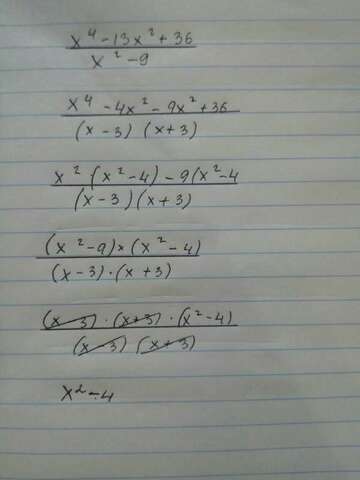 x⁴ - 13x² + 36
x² - 9
x⁴ - 4x² - 9x² + 36
(x - 3) (x + 3)
x² (x² - 4) - 9(x² - 4
(x - 3) (x + 3)
(x² - 9) × (x² - 4)
(x - 3) · (x + 3)
(x - 3) · (x + 3) · (x² - 4)
(x - 3) (x + 3)
x² - 4